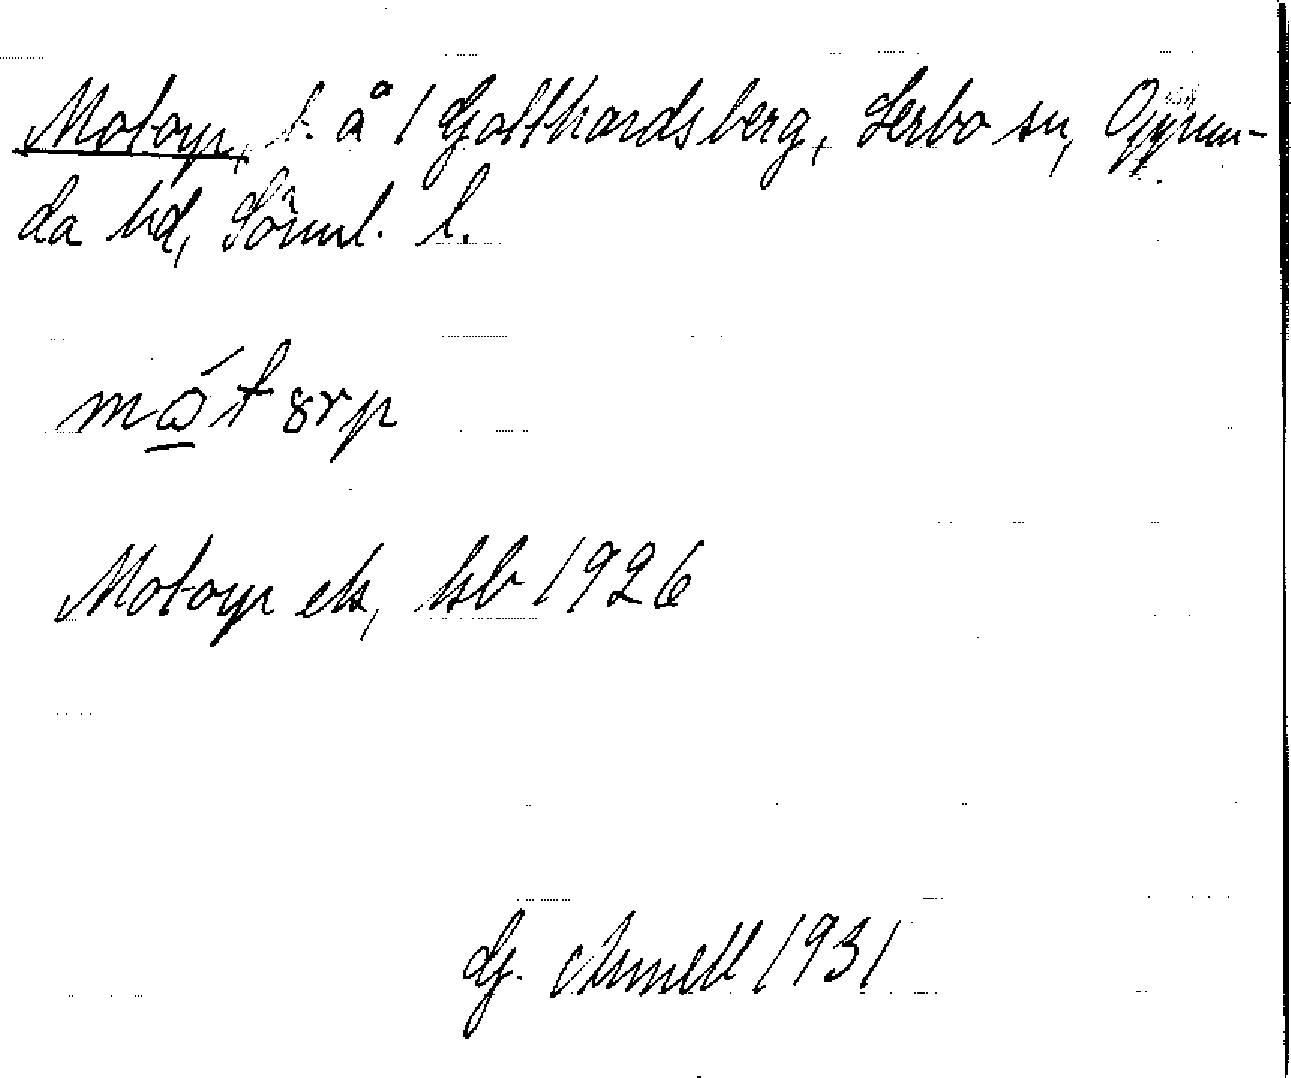 Motorp, t. å 1 Gotthardsberg, Lerbo sn, Oppun-
da hd, Söml. l.
mót srp
Motorp ek, kb 1926
G. Arnell 1931